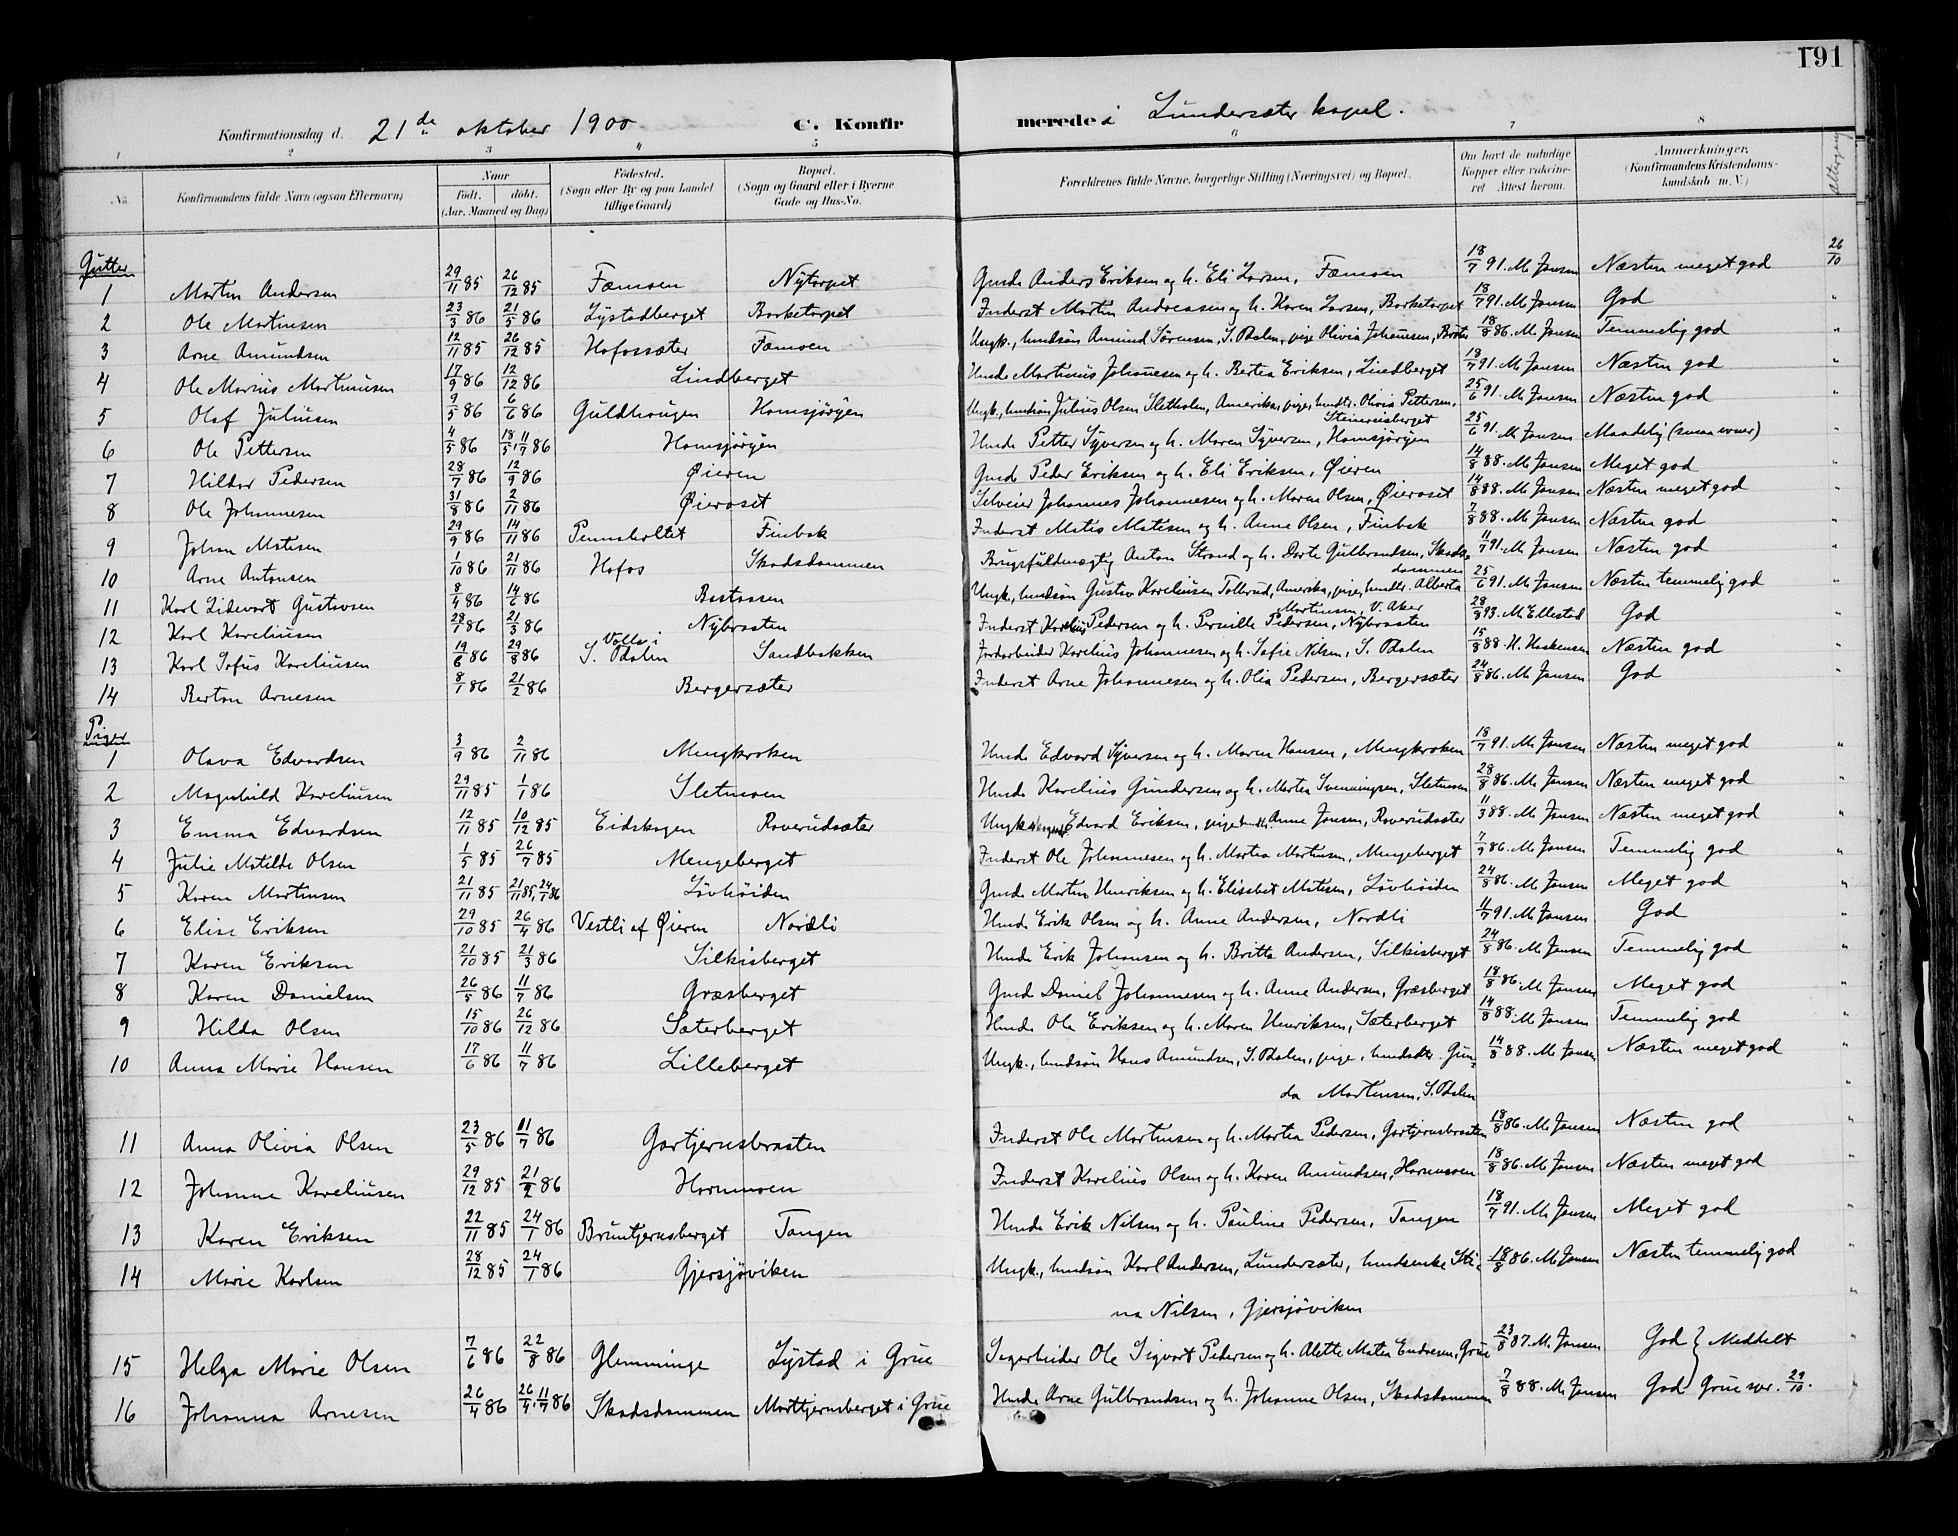 191
Konfirmationsdag d. 21de oktober 1900 C. Konfirmerede i Lundersæter kapel.
1 2 3 4 5 6 7 8
No. Konfirmandens fulde Navn (ogsaa Efternavn) Naar født, døbt. (Aar, Maaned og Dag) Fødested. (Sogn eller By og paa Landet tillige Gaard) Bopæl. (Sogn og Gaard eller i Byerne Gade og Hus-No. Forældrenes fulde Navne, borgerlige Stilling (Næringsvei) og Bopæl. Om havt de naturlige Kopper eller vakcineret Attest herom. Anmærkninger. (Konfirmandens Kristendomskundskab m. V.) Altergang
Gutter
1 Martin Andersen 29/11 85 26/12 85 Fæmoen Nytorpet Gmd Anders Eriksen og h. Eli Larsen, Fæmoen 18/7 91. M. Jansen Næsten meget god 26/10
2 Ole Martinsen 23/3 86 21/5 86 Lystadberget Borketorpet Inderst Martin Andreassen og h. Karen Larsen, Borketorpet 18/7 91. M. Jansen God "
3 Arne Amundsen 12/11 85 26/12 85 Hofossæter Fæmoen Ungk., husdsøn Amund Sørensen, S. Odalen, pige Olivia Johansen, 18/8 86. M. Jansen Temmelig god "
4 Ole Marius Martinusen 17/9 86 12/12 86 Lindberget Hmd Martinus Johannesen og h. Bertea Eriksen, Lindberget 18/7 91. M. Jansen Næsten god "
5 Olaf Juliusen 9/5 86 6/6 86 Guldhaugen Hamsjøryen Ungk., husdsøn Julius Olsen Sletholen, Amerika, pige, husdt. Olivia Pettersen, 25/6 91. M. Jansen Næsten god "
Steinreisberget
6 Ole Pettersen 4/5 86 18/5, 11/7 86 Hamsjøryen Hmd Petter Syversen og h. Maren Syversen, Hamsjøryen 25/6 91. M. Jansen Maadelig (smaa evner) "
7 Hildor Pedersen 28/7 86 12/9 86 Øieren Gmd Peder Eriksen og h. Eli Eriksen, Øieren 14/8 88. M. Jansen Meget god "
8 Ole Johannesen 31/8 86 2/11 86 Øieroset Selveier Johannes Johannesen og h. Maren Olsen, Øieroset 14/8 88. M. Jansen Næsten meget god "
9 Johan Matisen 29/9 86 14/11 86 Pennaholtet Finbak Inderst Matis Matisen og h. Anne Olsen, Finbak 7/8 88. M. Jansen Næsten god "
10 Arne Antonsen 1/10 86 21/11 86 Hofos Skadsdammen Brugsfuldmægtig Anton Strand og h. Dorte Gulbrandsen, Skadsdammen 11/7 91. M. Jansen Næsten god "
11 Karl Lidevart Gustavsen 8/4 86 14/6 86 Bastaasen Ungk., husdsøn Gustav Kareliusen Tollerud, Amerika, pige, husdt. Alberta 25/6 91. M. Jansen Næsten temmelig god "
Martinsen, V. Aker
12 Karl Kareliusen 28/1 86 21/3 86 Nybraaten Inderst Karelius Pedersen og h. Pernille Pedersen, Nybraaten 28/8 93. M. Ellestad God "
13 Karl Sofus Kareliusen 19/6 86 29/8 86 Valle i S. Odalen Sandbakken Jordarbeider Karelius Johannesen og h. Sofie Nilsen, S. Odalen 15/8 88. H. Haakensen Næsten god "
14 Berton Arnesen 8/1 86 21/2 86 Bergersæter Inderst Arne Johannesen og h. Olia Pedersen, Bergersæter 24/8 86. M. Jansen God "
Piger
1 Olava Edvardsen 3/9 86 2/11 86 Mengkroken Hmd Edvard Syversen og h. Maren Hansen, Mengkroken 18/7 91. M. Jansen Næsten meget god "
2 Magnhild Kareliusen 29/11 85 1/1 86 Sletmoen Hmd Karelius Gundersen og h. Martea Svenningsen, Sletmoen 28/8 86. M. Jansen Næsten meget god "
3 Emma Edvardsen 12/11 85 10/12 85 Eidskogen Raverudsæter Ungk. Edvard Eriksen, pige husdt. Anne Jansen, Raverudsæter 11/3 88. M. Jansen Næsten meget god "
4 Julie Matilde Olsen 1/5 85 26/7 85 Mengeberget Inderst Ole Johannesen og h. Martea Martinsen, Mengeberget 7/7 86. M. Jansen Temmelig god "
5 Karen Martinsen 21/11 85 21/11 85, 24/1 86 Løvhøiden Gmd Martin Henriksen og h. Elisabet Matisen, Løvhøiden 24/8 86. M. Jansen Meget god "
6 Elise Eriksen 29/10 85 26/4 86 Vestli af Øieren Nordli Hmd Erik Olsen og h. Anne Andersen, Nordli 11/7 91. M. Jansen God "
7 Karen Eriksen 21/10 85 21/3 86 Silkisberget Hmd Erik Johansen og h. Britta Andersen, Silkisberget 24/8 86. M. Jansen Temmelig god "
8 Karen Danielsen 26/5 86 11/7 86 Græsberget Gmd Daniel Johannesen og h. Anne Andersen, Græsberget 18/8 86. M. Jansen Meget god "
9 Hilda Olsen 15/10 86 26/12 86 Sæterberget Hmd Ole Eriksen og h. Maren Henriksen, Sæterberget 14/8 88. M. Jansen Temmelig god "
10 Anna Marie Hansen 17/6 86 11/7 86 Lilleberget Ungk., husdsøn Hans Amundsen, S. Odalen, pige, husdsdt. Gun- 14/8 88. M. Jansen Næsten meget god "
da Martinsen, S. Odalen
11 Anna Olivia Olsen 23/5 86 11/7 86 Gartjernsbraaten Inderst Ole Martinsen og h. Martea Pedersen, Gartjernsbraaten 18/8 86. M. Jansen Næsten god "
12 Johanne Kareliusen 29/12 85 21/2 86 Harmoen Inderst Karelius Olsen og h. Karen Amundsen, Harmoen 18/8 86. M. Jansen Næsten meget god "
13 Karen Eriksen 22/11 85 24/1 86 Bruntjernsberget Tangen Hmd Erik Nilsen og h. Pauline Pedersen, Tangen 18/7 91. M. Jansen Meget god "
14 Marie Karlsen 28/12 85 24/1 86 Gjersjøviken Ungk., husdsøn Karl Andersen, Lundersæter, husdsenke Sti- 18/8 86. M. Jansen Næsten temmelig god "
na Nilsen, Gjersjøviken
15 Helga Marie Olsen 7/6 86 22/8 86 Glemminge Lystad i Grue Sagarbeider Ole Sigvart Pedersen og h. Alette Matea Endresen, Grue 23/8 87. M. Jansen God } Meddelt "
16 Johanna Arnesen 26/4 86 26/4, 11/7 86 Skadsdammen Marttjernsberget i Grue Hmd Arne Gulbrandsen og h. Johanne Olsen, Skadsdammen 7/8 88. M. Jansen God Grue 29/10. "